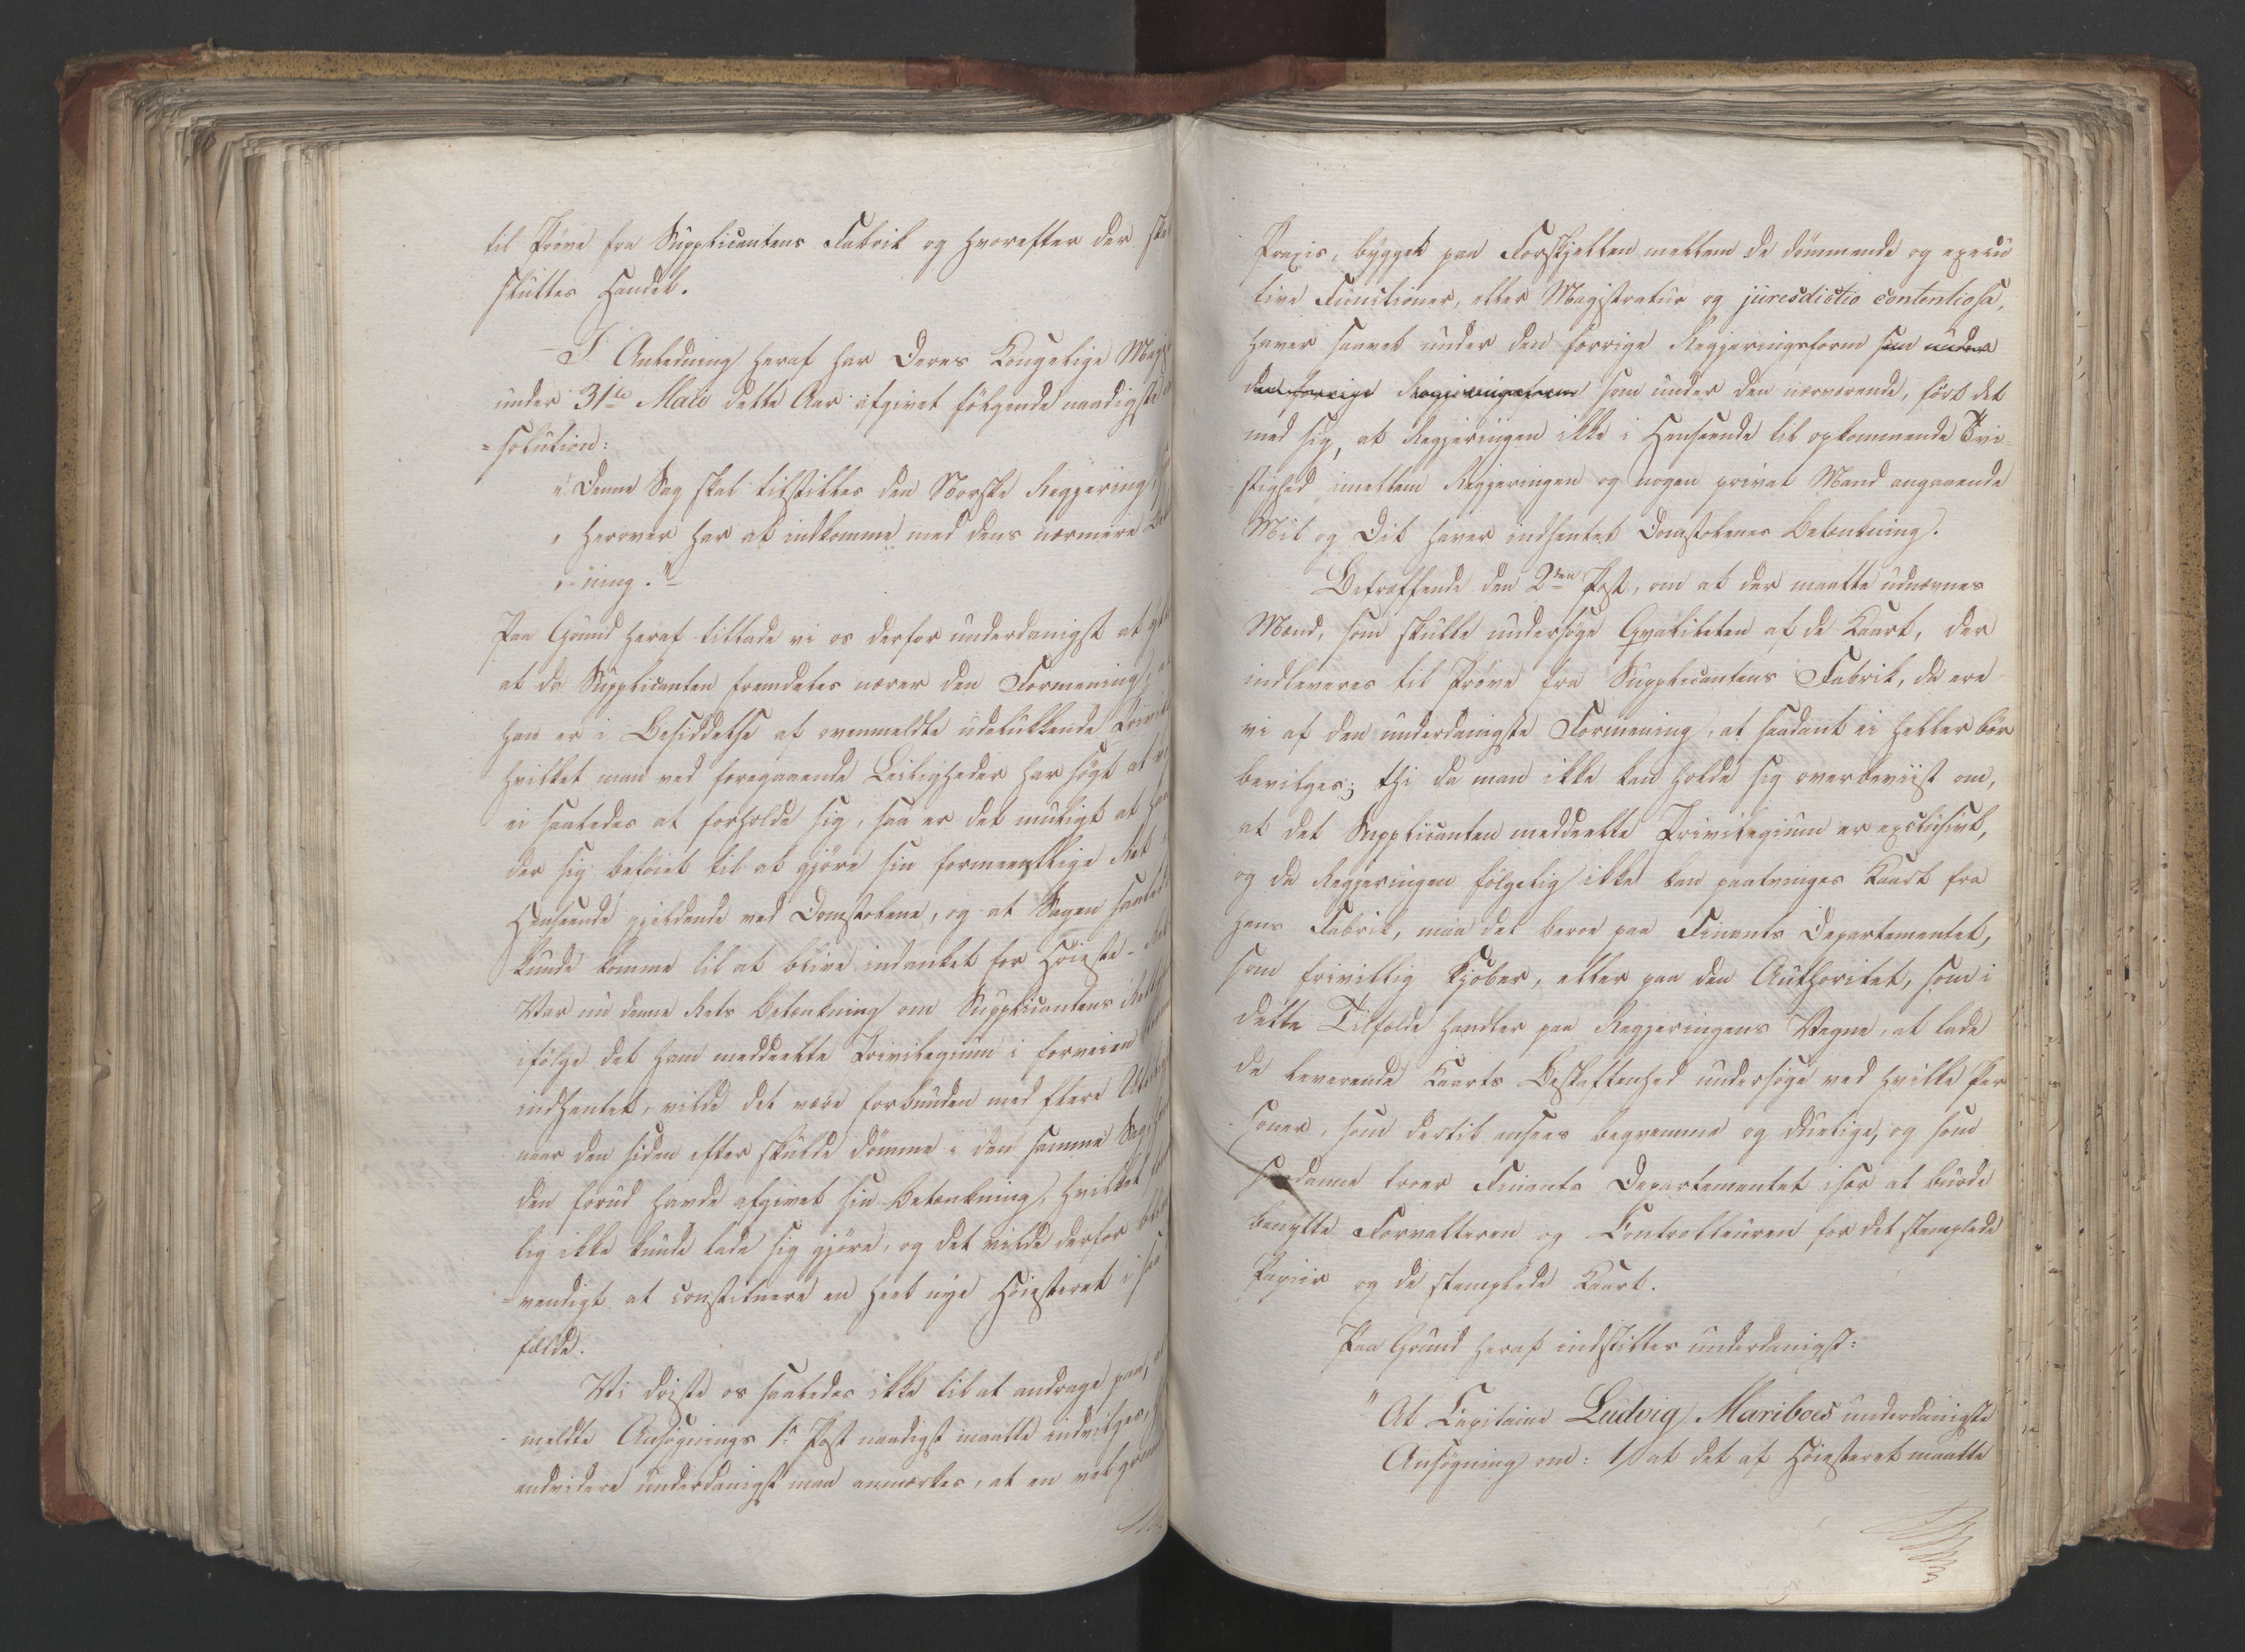 til Prøve fra Supplicantens Fabrik og hvorefter der
sluttes Handel.
I Anledning heraf har Deres Kongelige Maj
under 31te Maii dette Aar afgivet følgende naadigste
=solution:
"Denne Sag skal tilstilles den Norske Regjering,
" herover har at indkomme med dens nærmere
"=ning."
Paa Grund heraf tillade vi os derfor underdanigst at
at da Supplicanten fremdeles nærer den Formening,
han er i Besiddelse af ovenmeldte udelukkende Privil
hvilket man ved foregaaende Leiligheder har søgt at
ei saaledes at forholde sig, saa er det muligt at han
der sig beføiet til at gjøre sin formeentlige Ret i
Henseende gjeldende ved Domstolene, og at Sagen saaled
kunde komme til at blive indanket for Høieste-Ret
Var nu denne Rets Betænkning om Supplicantens Ret
ifølge det ham meddeelte Privilegium i Forveien
indhentet, vilde det være forbunden med flere
naar den siden efter skulde dømme i den samme Sag,
den forud havde afgivet sin Betænkning, hvilket
lig ikke kunde lade sig gjøre, og det vilde derfor
=vendigt at constituere en heel nye Høiesteret i
fælde.
Vi driste os saaledes ikke til at andrage paa,
meldte Ansøgnings 1ste Post naadigst maatte indvilges,
endvidere underdanigst maa anmærkes, at en vel
Praxis, bygget paa Forskjellen mellem de dømmende og execu
tive Functioner, eller Magistratur og jurisdictio contentiosa,
haver saavel under den forrige Regjeringsform som under
den forrige Regjeringsform som under den nærværende, ført det
med sig, at Regjeringen ikke i Henseende til opkommende Tvi=
stighed imellem Regjeringen og nogen privat Mand angaaende
Mit og Dit haver indhentet Domstolenes Betænkning.
Betræffende den 2den Post, om at der maatte udnævnes
Mænd, som skulle undersøge Qvaliteten af de Kaart, der
indleveres til Prøve fra Supplicantens Fabrik, da ere
vi af den underdanigste Formening, at saadant ei heller bør
bevilges; thi da man ikke kan holde sig overbeviist om,
at det Supplicanten meddeelte Privilegium er exclusivt,
og da Regjeringen følgelig ikke kan paatvinges Kaart fra
hans Fabrik, maa det beroe paa Finants Departementet,
som frivillig Kjøber, eller paa den Authoritet, som i
dette Tilfælde handler paa Regjeringens Vegne, at lade
de leverende Kaarts Beskaffenhed undersøge ved hvilke Per
soner, som dertil ansees beqvemme og duelige, og som
saadanne troer Finants Departementet især at burde
benytte Forvalteren og Controlleuren for det stemplede
Papiir og de stemplede Kaart.
Paa Grund heraf indstilles underdanigst:
"At Capitaine Ludvig Mariboes underdanigste
Ansøgning om: 1) at det af Høiesteret maatte